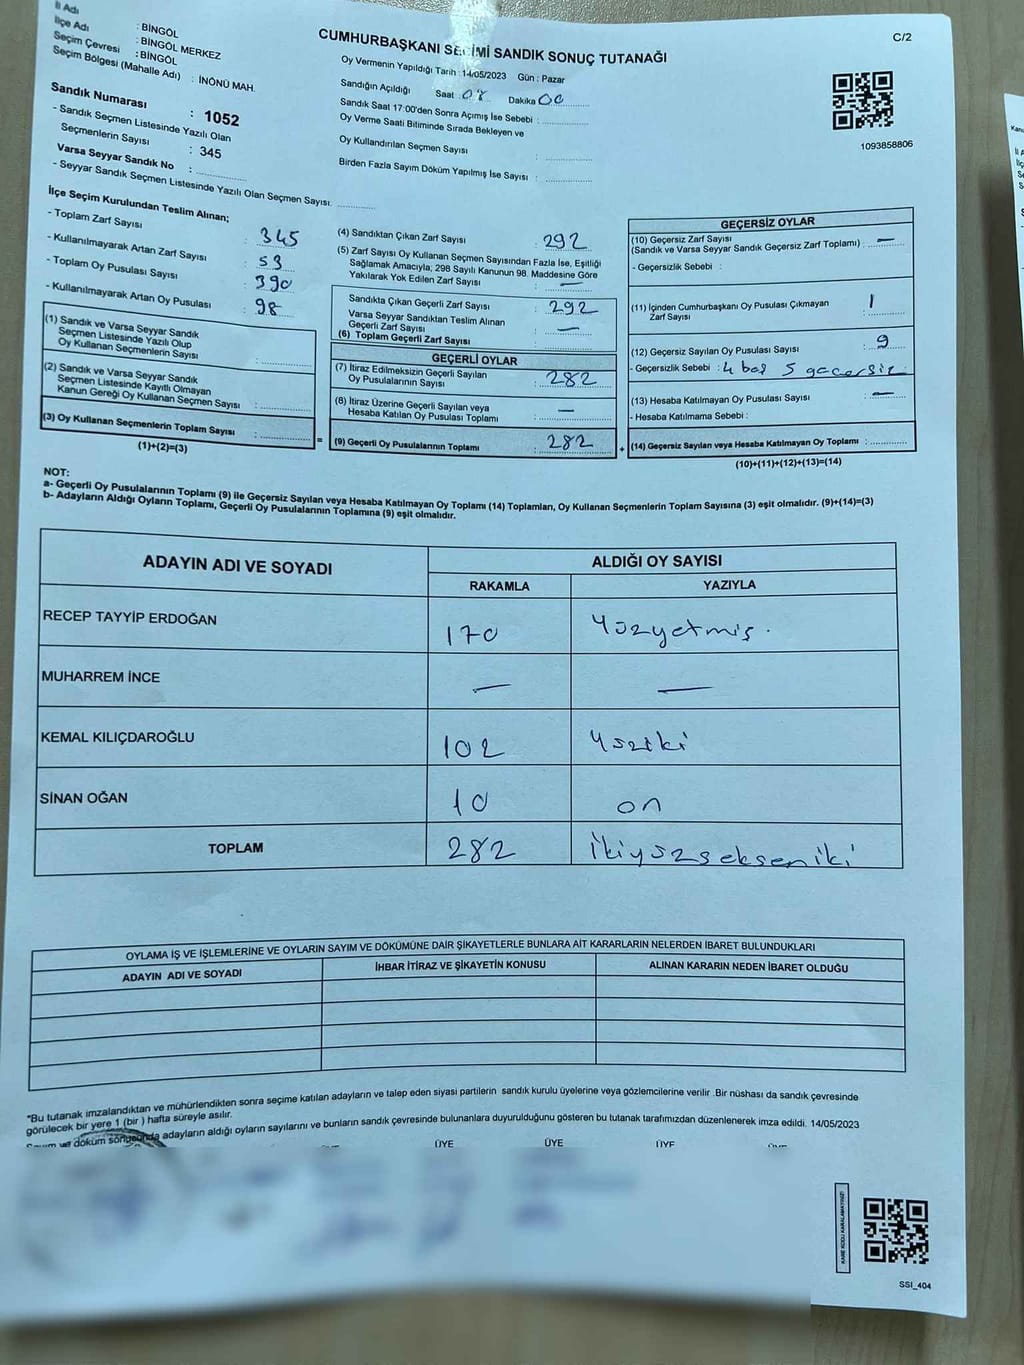 İl Adı
İlçe Adı : BİNGÖL
Seçim Çevresi : BİNGÖL MERKEZ
Seçim Bölgesi (Mahalle Adı) : BİNGÖL
: İNÖNÜ MAH.
Sandık Numarası : 1052
- Sandık Seçmen Listesinde Yazılı Olan
Seçmenlerin Sayısı : 345
Varsa Seyyar Sandık No :
- Seyyar Sandık Seçmen Listesinde Yazılı Olan Seçmen Sayısı:
CUMHURBAŞKANI SEÇİMİ SANDIK SONUÇ TUTANAĞI
C/2
Oy Vermenin Yapıldığı Tarih : 14/05/2023 Gün : Pazar
Sandığın Açıldığı Saat : 08 Dakika 00
Sandık Saat 17:00'den Sonra Açımış İse Sebebi :
Oy Verme Saati Bitiminde Sırada Bekleyen ve
Oy Kullandırılan Seçmen Sayısı :
Birden Fazla Sayım Döküm Yapılmış İse Sayısı :
1093858806
İlçe Seçim Kurulundan Teslim Alınan;
- Toplam Zarf Sayısı : 345
- Kullanılmayarak Artan Zarf Sayısı : 53
- Toplam Oy Pusulası Sayısı : 390
- Kullanılmayarak Artan Oy Pusulası : 98
(1) Sandık ve Varsa Seyyar Sandık
Seçmen Listesinde Yazılı Olup
Oy Kullanan Seçmenlerin Sayısı :
(2) Sandık ve Varsa Seyyar Sandık
Seçmen Listesinde Kayıtlı Olmayan
Kanun Gereği Oy Kullanan Seçmen Sayısı :
(3) Oy Kullanan Seçmenlerin Toplam Sayısı :
(1)+(2)=(3)
=
(4) Sandıktan Çıkan Zarf Sayısı : 292
(5) Zarf Sayısı Oy Kullanan Seçmen Sayısından Fazla İse, Eşitliği
Sağlamak Amacıyla; 298 Sayılı Kanunun 98. Maddesine Göre
Yakılarak Yok Edilen Zarf Sayısı : —
Sandıkta Çıkan Geçerli Zarf Sayısı : 292
Varsa Seyyar Sandıktan Teslim Alınan
Geçerli Zarf Sayısı : —
(6) Toplam Geçerli Zarf Sayısı :
GEÇERLİ OYLAR
(7) İtiraz Edilmeksizin Geçerli Sayılan
Oy Pusulalarının Sayısı : 282
(8) İtiraz Üzerine Geçerli Sayılan veya
Hesaba Katılan Oy Pusulası Toplamı : —
(9) Geçerli Oy Pusulalarının Toplamı : 282
+
GEÇERSİZ OYLAR
(10) Geçersiz Zarf Sayısı
(Sandık ve Varsa Seyyar Sandık Geçersiz Zarf Toplamı) : —
- Geçersizlik Sebebi :
(11) İçinden Cumhurbaşkanı Oy Pusulası Çıkmayan
Zarf Sayısı : 1
(12) Geçersiz Sayılan Oy Pusulası Sayısı : 9
- Geçersizlik Sebebi : 4 boş 5 geçersiz
(13) Hesaba Katılmayan Oy Pusulası Sayısı : —
- Hesaba Katılmama Sebebi :
(14) Geçersiz Sayılan veya Hesaba Katılmayan Oy Toplamı :
(10)+(11)+(12)+(13)=(14)
NOT:
a- Geçerli Oy Pusulalarının Toplamı (9) ile Geçersiz Sayılan veya Hesaba Katılmayan Oy Toplamı (14) Toplamları, Oy Kullanan Seçmenlerin Toplam Sayısına (3) eşit olmalıdır. (9)+(14)=(3)
b- Adayların Aldığı Oyların Toplamı, Geçerli Oy Pusulalarının Toplamına (9) eşit olmalıdır.
ADAYIN ADI VE SOYADI
ALDIĞI OY SAYISI
RAKAMLA YAZIYLA
RECEP TAYYİP ERDOĞAN 170 Yüzyetmiş.
MUHARREM İNCE — —
KEMAL KILIÇDAROĞLU 102 Yüziki
SİNAN OĞAN 10 on
TOPLAM 282 İkiyüzsekseniki
OYLAMA İŞ VE İŞLEMLERİNE VE OYLARIN SAYIM VE DÖKÜMÜNE DAİR ŞİKAYETLERLE BUNLARA AİT KARARLARIN NELERDEN İBARET BULUNDUKLARI
ADAYIN ADI VE SOYADI İHBAR İTİRAZ VE ŞİKAYETİN KONUSU ALINAN KARARIN NEDEN İBARET OLDUĞU
*Bu tutanak imzalandıktan ve mühürlendikten sonra seçime katılan adayların ve talep eden siyasi partilerin sandık kurulu üyelerine veya gözlemcilerine verilir .Bir nüshası da sandık çevresinde
görülecek bir yere 1 (bir ) hafta süreyle asılır.
Sayım ve döküm sonucunda adayların aldığı oyların sayılarını ve bunların sandık çevresinde bulunanlara duyurulduğunu gösteren bu tutanak tarafımızdan düzenlenerek imza edildi. 14/05/2023
ÜYE ÜYE ÜYE
KARE KODU KARALAMAYINIZ!
SSI_404